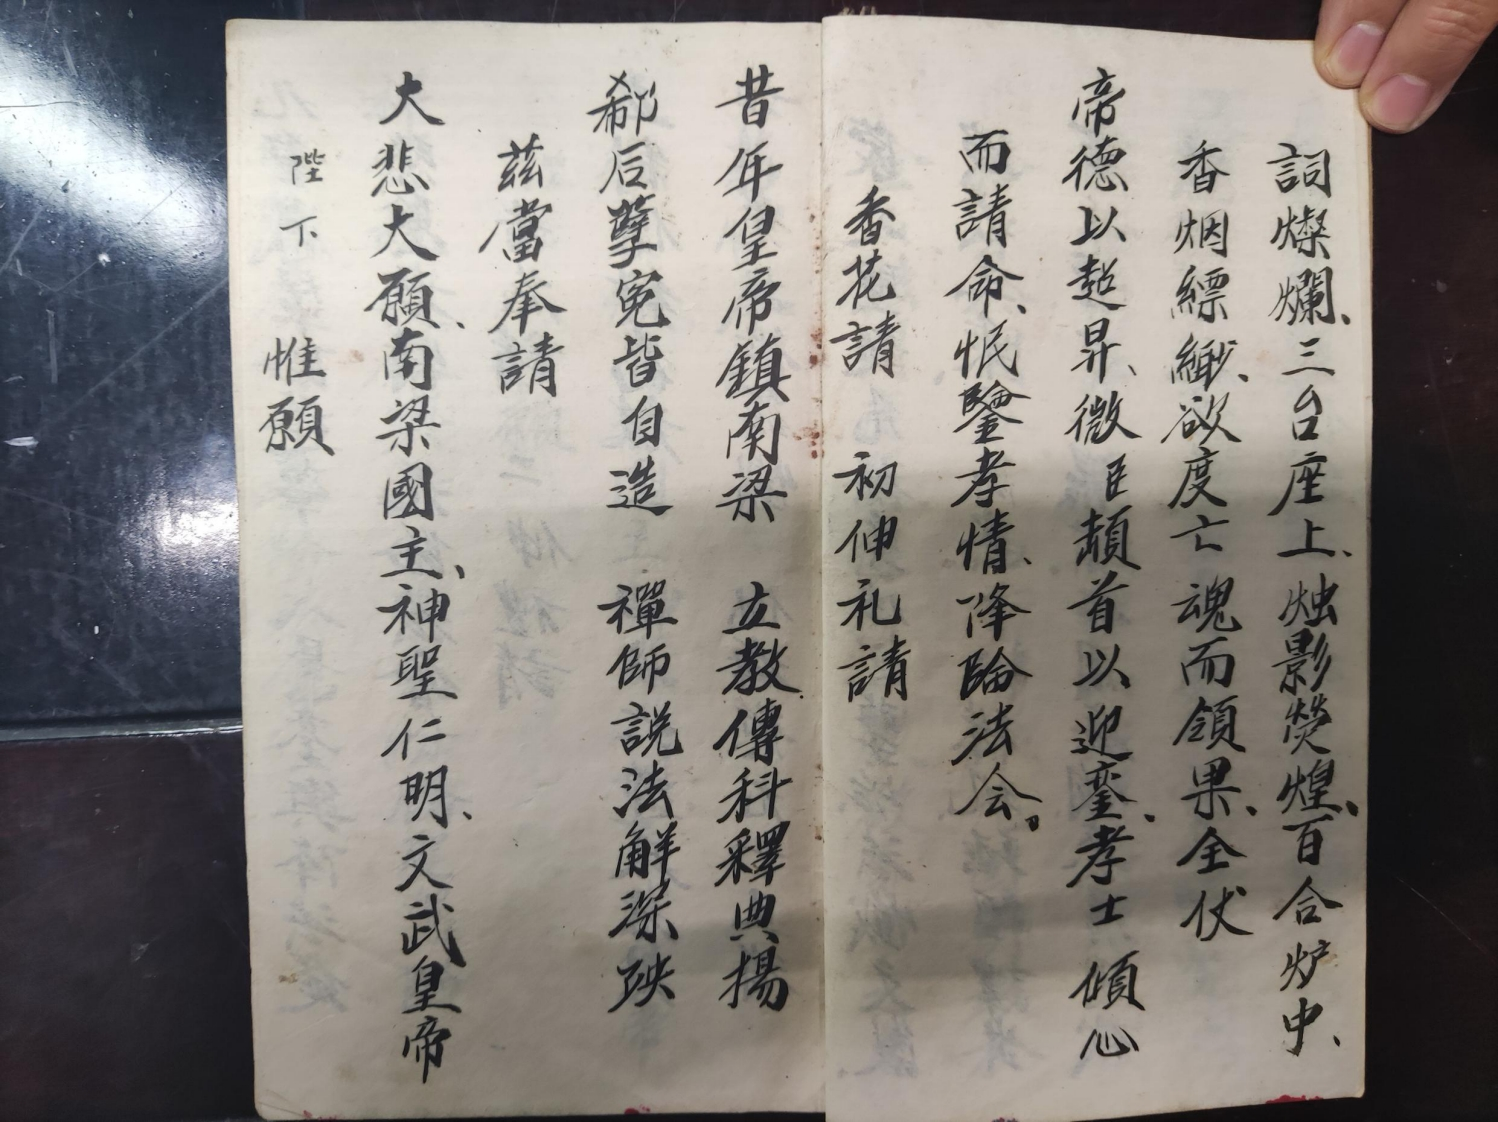 詞燦爛、三台座上、烛影熒煌、百合炉中、
香烟縹緲、欲度亡魂而領果、全伏
帝德以超昇、微臣頓首以迎鑾、孝士傾心
而請命、怋鑒孝情、降臨法会。
香花請 初伸礼請
昔年皇帝鎮南梁 立教傳科釋典揚
郗后孽寃皆自造 禪師説法解深殃
茲當奉請
大悲大願、南梁國主、神聖仁明、文武皇帝
陛下 惟願